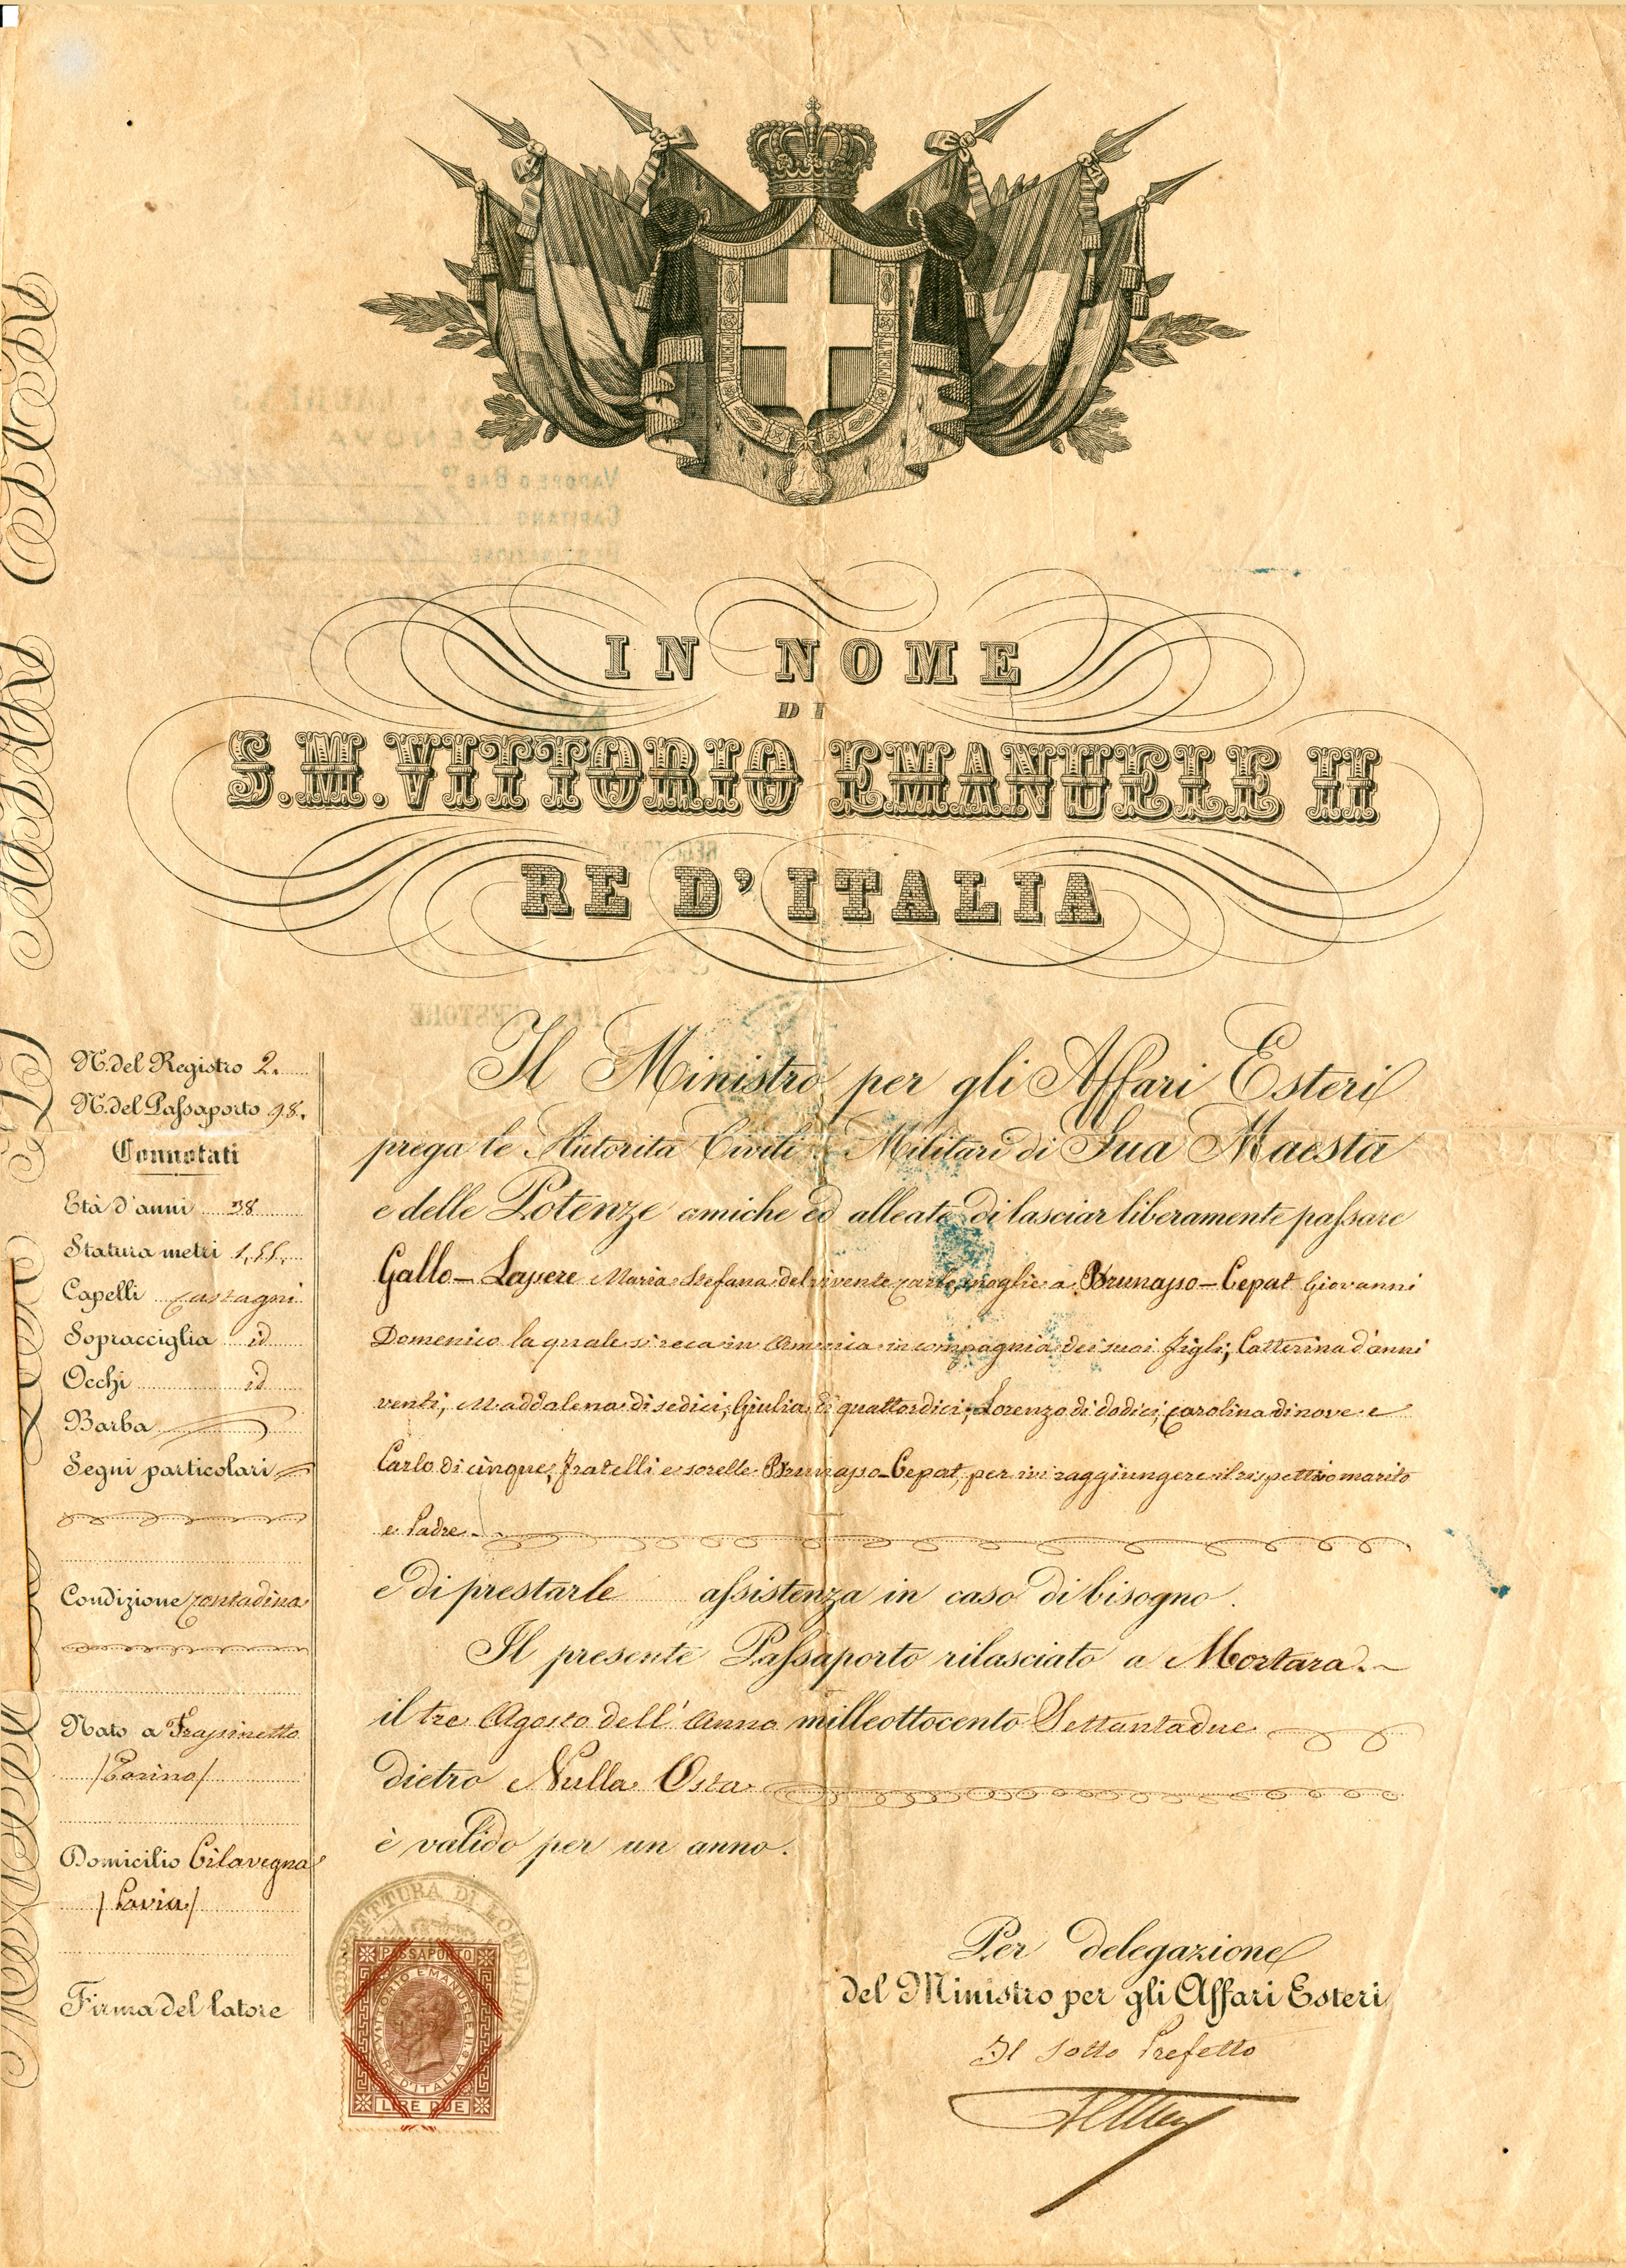 IN NOME
DI
S. M. VITTORIO EMANUELE II
RE D'ITALIA
N. del Registro 2.
N. del Passaporto 98.
Connotati
Età d'anni 38
Statura metri 1,55.
Capelli castagni
Sopracciglia id
Occhi id
Barba
Segni particolari
Condizione contadina
Nato a Frassinetto
/Torino/
Domicilio Cilavegna
/Pavia/
Firma del latore
Il Ministro per gli Affari Esteri
prega le Autorità Civili Militari di Sua Maestà
e delle Potenze amiche ed alleate di lasciar liberamente passare
Gallo - Maria Stefana del vivente Carlo, moglie a Brunasso - Cepat Giovanni
Domenico la quale si reca in in compagnia dei suoi figli; Catterina d'anni
venti, Maddalena di sedici, Giulia di quattordici, Lorenzo di dodici, Carolina di nove e
Carlo di cinque, fratelli e sorelle Brunasso-Cepat, per ivi raggiungere il rispettivo marito
e Padre.
e di prestarle assistenza in caso di bisogno.
Il presente Passaporto rilasciato a Mortara.
il tre Agosto dell'Anno milleottocento Settantadue
dietro Nulla Osta
è valido per un anno.
PREFETTURA DI LOMELLINA
PASSAPORTO
VITTORIO EMANUELE II
RE D'ITALIA
LIRE DUE
Per delegazione
del Ministro per gli Affari Esteri
Il Sotto Prefetto